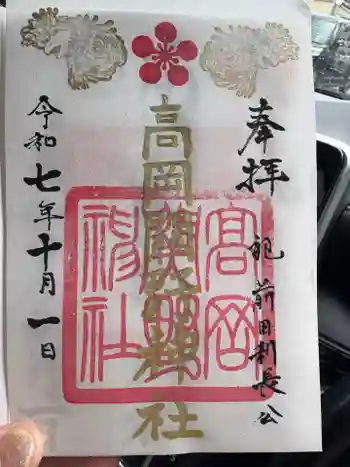 奉拝
祀 前田利長公
高岡関野神社
高岡関野神社
令和七年十月一日